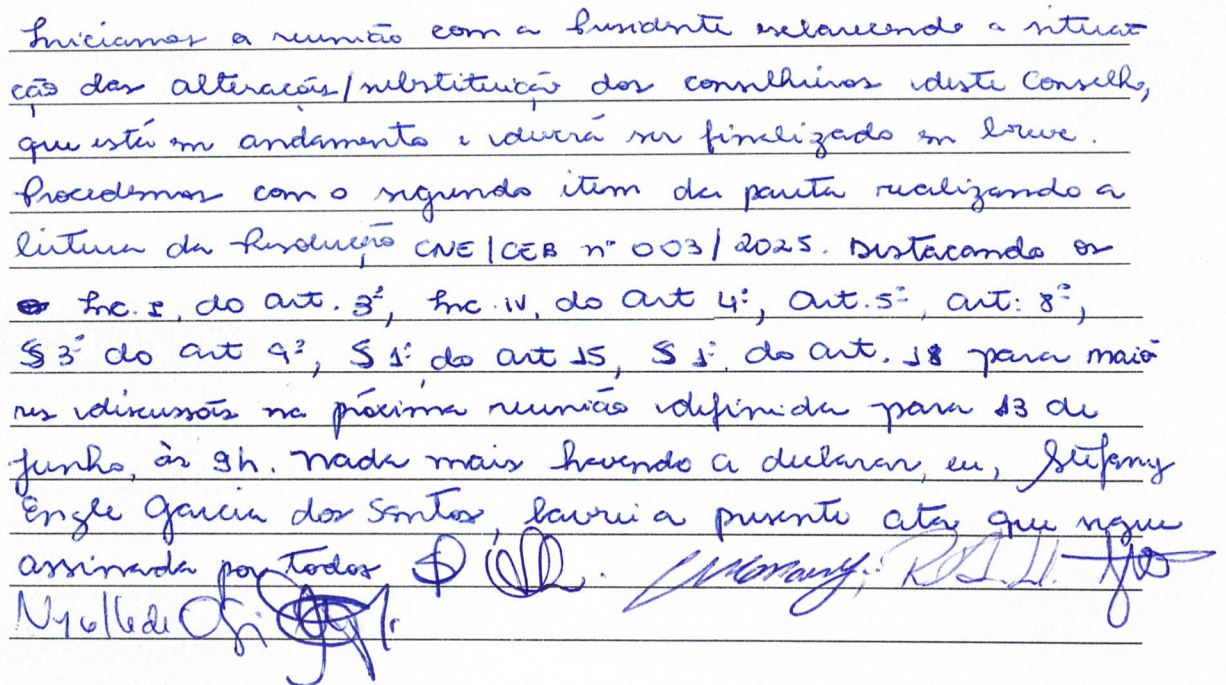 Iniciamos a reunião com a Presidente esclarecendo a situa
ção das alterações/substituição dos conselheiros deste Conselho,
que está em andamento e deverá ser finalizado em breve.
Procedemos com o segundo item da pauta realizando a
leitura da Resolução CNE/CEB nº 003/2025. Destacando os
Inc. I, do art. 3º, Inc. IV, do art 4º, art. 5º, art. 8º,
§ 3º do art 9º, § 1º do art 15, § 1º do art. 18 para maio
res discussões na próxima reunião definida para 13 de
junho, às 9h. Nada mais havendo a declarar, eu, Stefany
Engle Garcia dos Santos, lavrei a presente ata que segue
assinada por todos